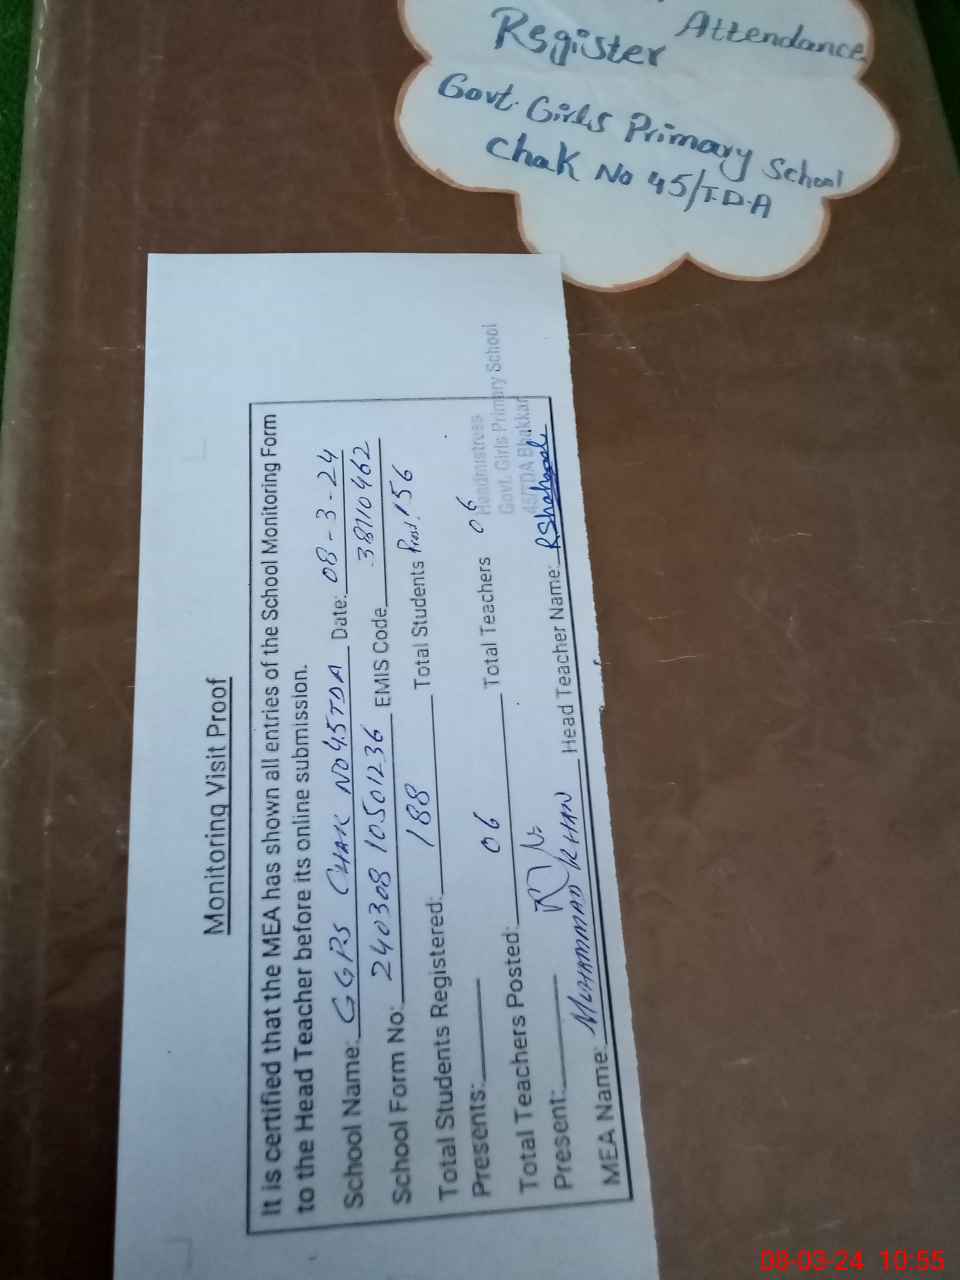 Attendance
Register
Govt. Girls Primary School
Chak No 45/T.D.A
Monitoring Visit Proof
It is certified that the MEA has shown all entries of the School Monitoring Form
to the Head Teacher before its online submission.
School Name: GGPS CHAK NO 45TDA Date: 08-3-24
School Form No: 240308 10501236 EMIS Code 38110462
Total Students Registered: 188 Total Students 156
Presents:
Total Teachers Posted: 06 Total Teachers 06
Present:
MEA Name: MUHAMMAD KHAN Head Teacher Name:
Headmistress
Govt. Girls Primary School
45/TDA Bhakkar
08-03-24 10:55